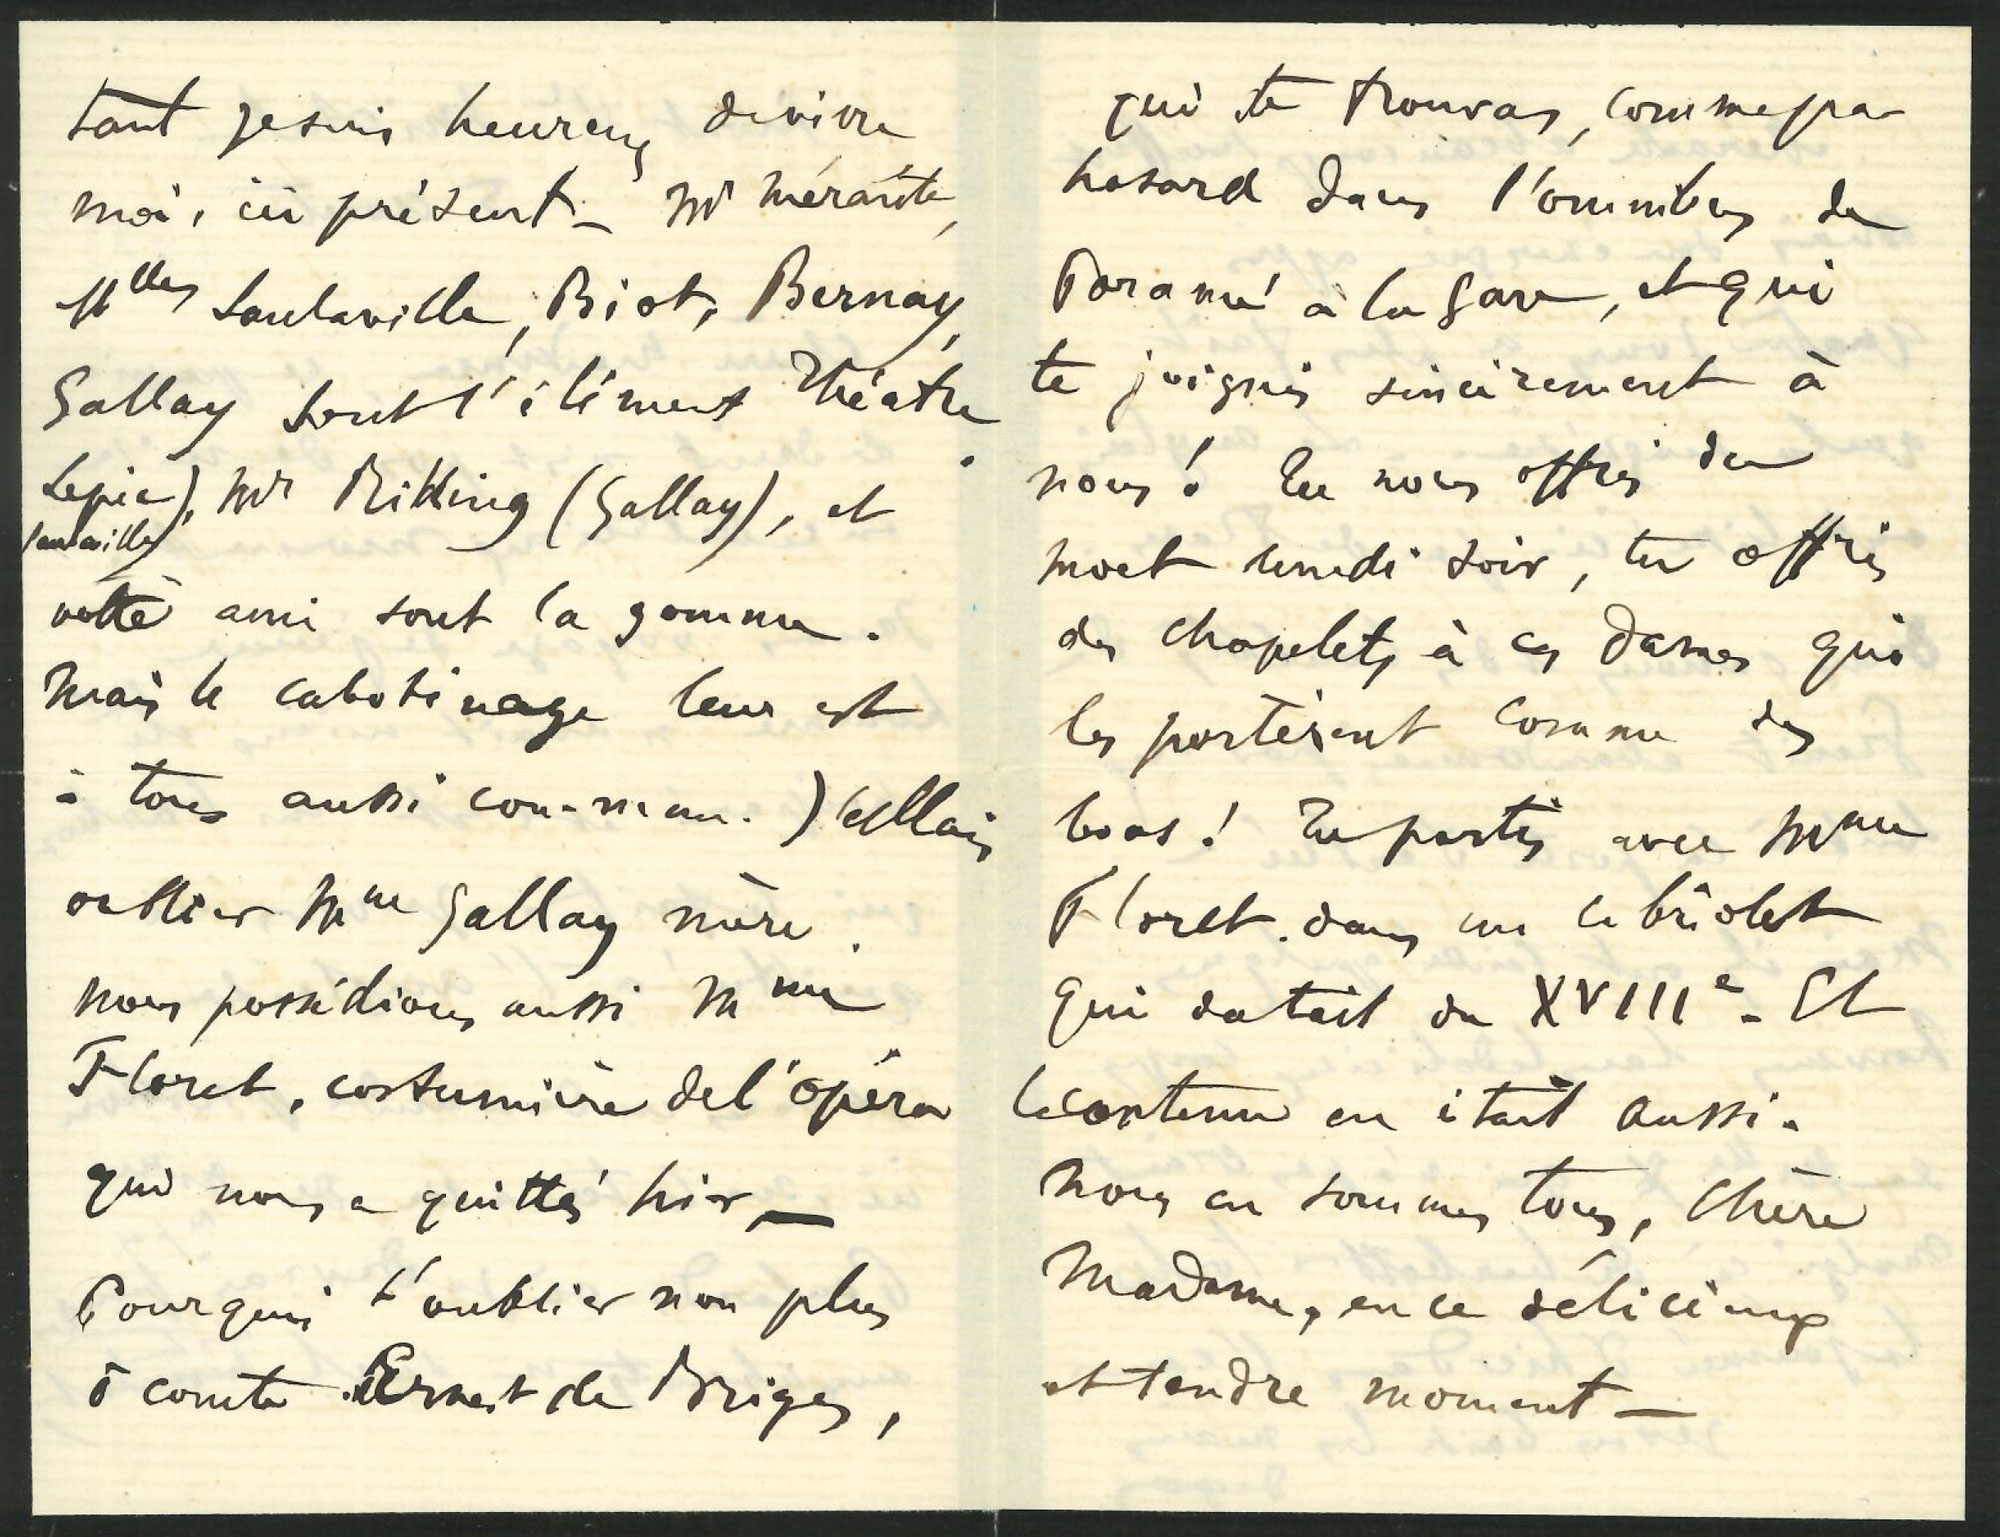 tant je suis heureux de vivre
moi, ici présent _ Mr Mérante,
Mlles Sanlaville, Biot, Bernay,
Gallay sont l'élément théâtre.
Lepic), Mr Ridding (Gallay), et
Sanlaville
votre ami sont la gomme.
Mais le cabotinage leur est
à tous aussi com-mun.)
oublier Mme Gallay mère.
nous possédions aussi Mme
Floret, costumière de l'opéra
qui nous a quittés hier _
Pourquoi t'oublier non plus
ô comte Ernest de Briges,
qui te trouvas, comme par
hasard dans l'omnibus de
Paramé à la gare, et qui
te joignis sincèrement à
nous! Tu nous offris du
moet lundi soir, tu offris
des chapelets à ces dames qui
les portèrent comme des
boas! Tu partis avec Mme
Floret dans un cabriolet
qui datait du XVIIIe. Et
le contenu en était aussi.
Nous en sommes tous, Chère
Madame, en ce délicieux
et tendre moment _